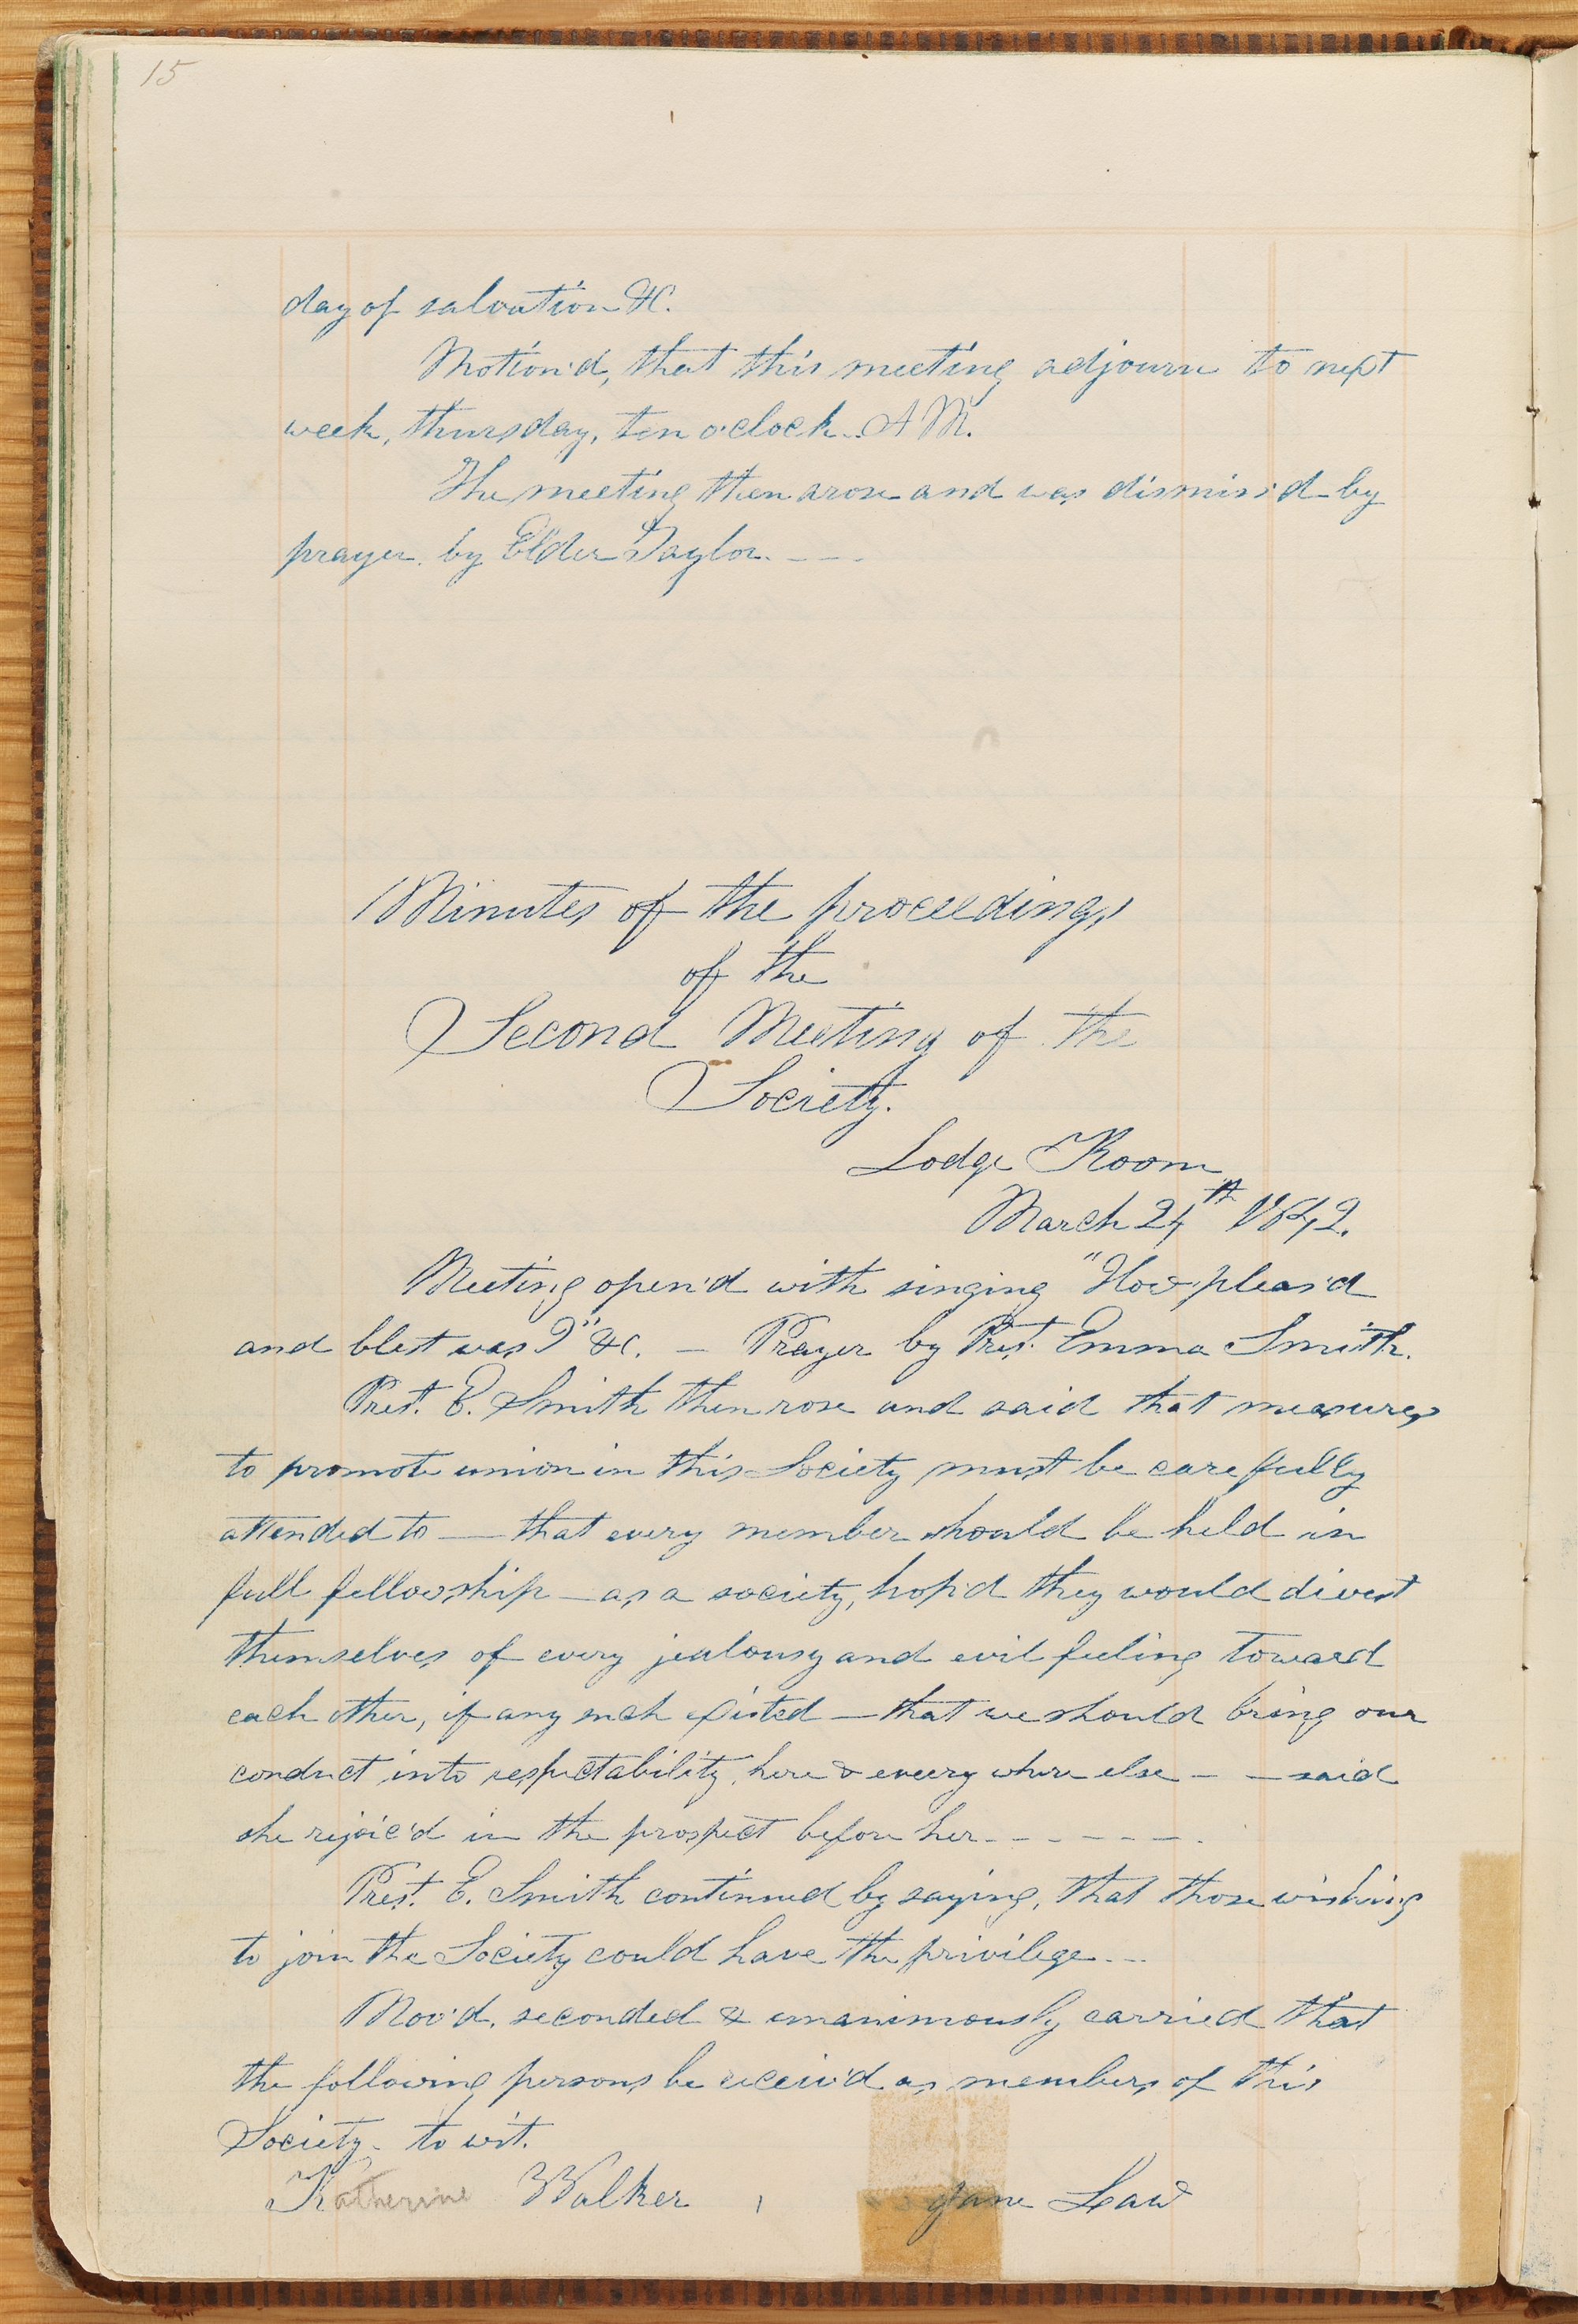 15
day of salvation &C.
Motion'd, that this meeting adjourn to next
week, thursday, ten o'clock. A M.
The meeting then arose and was dismiss'd by
prayer by Elder Taylor. - - -
Minutes of the proceedings
of the
Second Meeting of the
Society.
Lodge Room
March 24th 1842.
Meeting open'd with singing "How pleas'd
and blest was I" &c. — Prayer by Prest. Emma Smith.
Prest. E. Smith then rose and said that measures
to promote union in this Society must be carefully
attended to — that every member should be held in
full fellowship — as a society, hop'd they would divest
themselves of every jealousy and evil feeling toward
each other, if any such existed — that we should bring our
conduct into respectability, here & every where else - - said
she rejoic'd in the prospect before her - - - - - - -
Prest. E. Smith continued by saying, that those wishing
to join the Society could have the privilege - - -
Mov'd, seconded & unanimously carried that
the following persons be receiv'd as members of this
Society - to wit.
Katherine Walker , Jane Law